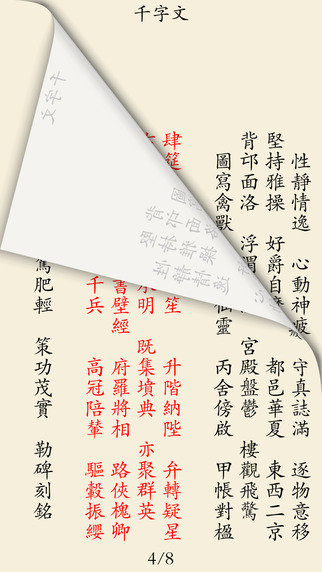 千字文
性靜情逸 心動神疲 守真誌滿 逐物意移
堅持雅操 好爵自 都邑華夏 東西二京
背邙面洛 浮渭 宮殿盤鬱 樓觀飛驚
圖寫禽獸 靈 丙舍傍啟 甲帳對楹
肆筵 笙 升階納陛 弁轉疑星
明 既集墳典 亦聚群英
書壁經 府羅將相 路俠槐卿
千兵 高冠陪輦 驅轂振纓
肥輕 策功茂實 勒碑刻銘
4/8